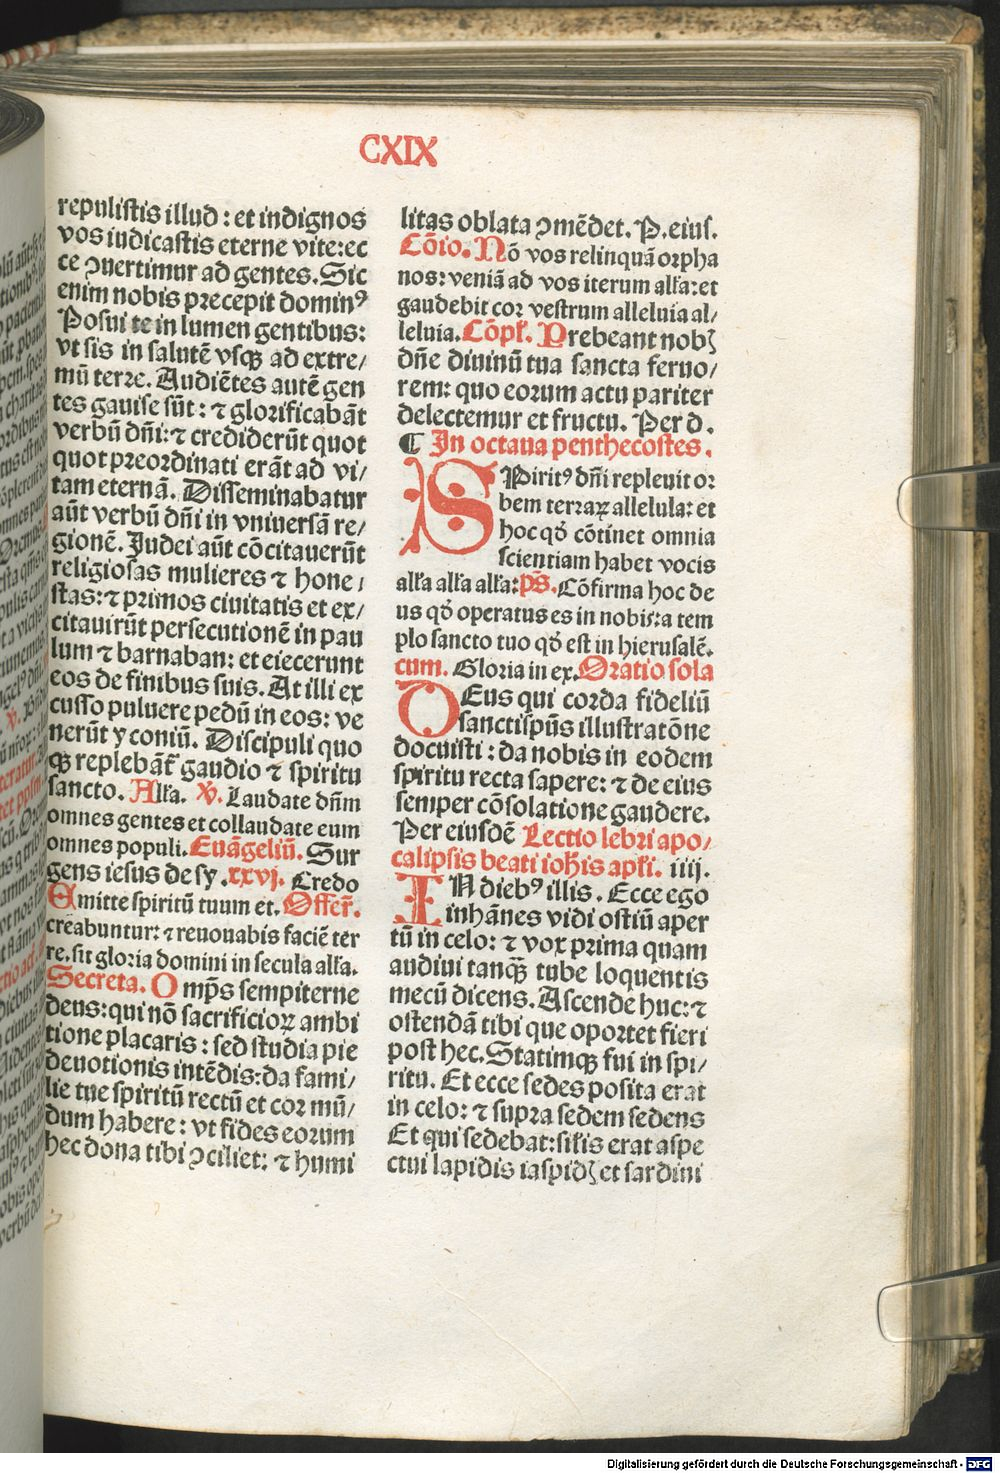 CXIX
repulistis illud : et indignos
vos iudicastis eterne vite: ec
ce ꝯuertimur ad gentes. Sic
enim nobis precepit dominꝰ
Posui te in lumen gentibus:
vt sis in salutē vsqꝫ ad extre/
mū terre. Audiētes autē gen
tes gauise sūt : ⁊ glorificabāt
verbū dn̄i: ⁊ crediderūt quot
quot preordinati erāt ad vi/
tam eternā. Disseminabatur
aūt verbū dn̄i in vniuersā re/
gionē. Judei aūt cōcitauerūt
religiosas mulieres ⁊ hone/
stas: ⁊ primos ciuitatis et ex/
citauirūt persecutionē in pau
lum ⁊ barnaban: et eiecerunt
eos de finibus suis. At illi ex
cusso puluere pedū in eos: ve
nerūt yconiū. Discipuli quo
qꝫ replebāt᷑ gaudio ⁊ spiritu
sancto. Alła. ꝟ. Laudate dn̄m
omnes gentes et collaudate eum
omnes populi. Euāgeliū. Sur
gens iesus de sy. xxvj. Credo
Emitte spiritū tuum et. Offer̄.
creabuntur: ⁊ reuouabis faciē ter
re. sit gloria domini in secula ałła.
Secreta. Omp̄s sempiterne
deus: qui nō sacrificioꝝ ambi
tione placaris : sed studia pie
deuotionis intēdis: da fami/
lie tue spiritū rectū et cor mū/
dum habere : vt fides eorum
hec dona tibi ꝯciliet: ⁊ humi
litas oblata ꝯmēdet. P. eius.
Cōio. Nō vos relinquā orpha
nos: veniā ad vos iterum ałła: et
gaudebit cor vestrum alleluia al/
leluia. Cōpł. Prebeant nobꝫ
dn̄e diuinū tua sancta feruo/
rem: quo eorum actu pariter
delectemur et fructu. Per d.
¶ In octaua penthecostes.
SPiritꝰ dn̄i repleuit or
bem terraꝝ allelula: et
hoc qď cōtinet omnia
scientiam habet vocis
ałła ałła ałła: ps̄. Cōfirma hoc de
us qď operatus es in nobis: a tem
plo sancto tuo qď est in hierusalē.
cum. Gloria in ex. Oratio sola
DEus qui corda fideliū
sancti sp̄us illustratōne
docuisti : da nobis in eodem
spiritu recta sapere: ⁊ de eius
semper cōsolatione gaudere.
Per eiusdē Lectio lebri apo/
calipsis beati ioh̄is apłi. iiij.
IN diebꝰ illis. Ecce ego
inhānes vidi ostiū aper
tū in celo: ⁊ vox prima quam
audiui tanqꝫ̄ tube loquentis
mecū dicens. Ascende huc: ⁊
ostendā tibi que oportet fieri
post hec. Statimqꝫ fui in spi/
ritu. Et ecce sedes posita erat
in celo: ⁊ supra sedem sedens
Et qui sedebat: siłis erat aspe
ctui lapidis iaspidꝫ et sardini
Digitalisierung gefördert durch die Deutsche Forschungsgemeinschaft - DFG